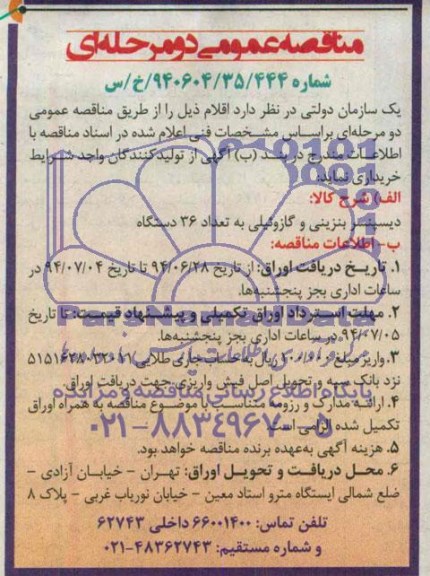 مناقصه عمومی دو مرحله‌ای
شماره ۹۴۰۶۰۴/۳۵/۴۴۴/خ/س
یک سازمان دولتی در نظر دارد اقلام ذیل را از طریق مناقصه عمومی
دو مرحله‌ای براساس مشخصات فنی اعلام شده در اسناد مناقصه با
اطلاعات مندرج در بند (ب) آگهی از تولیدکنندگان واجد شرایط
خریداری نماید:
الف) شرح کالا:
دیسپنسر بنزینی و گازوئیلی به تعداد ۳۶ دستگاه
ب- اطلاعات مناقصه:
۱. تاریخ دریافت اوراق: از تاریخ ۹۴/۰۶/۲۸ تا تاریخ ۹۴/۰۷/۰۴ در
ساعات اداری بجز پنجشنبه‌ها.
۲. مهلت استرداد اوراق تکمیلی و پیشنهاد قیمت: تا تاریخ
۹۴/۰۷/۰۵ در ساعات اداری بجز پنجشنبه‌ها.
۳. واریز مبلغ ریال به حساب جاری طلایی
نزد بانک سپه و تحویل اصل فیش واریزی جهت دریافت اوراق.
۴. ارائه مدارک و رزومه متناسب با موضوع مناقصه به همراه اوراق
تکمیل شده الزامی است.
۵. هزینه آگهی به‌عهده برنده مناقصه خواهد بود.
۶. محل دریافت و تحویل اوراق: تهران - خیابان آزادی -
ضلع شمالی ایستگاه مترو استاد معین - خیابان نوریاب غربی - پلاک ۸
تلفن تماس: ۶۶۰۰۱۴۰۰ داخلی ۶۲۷۴۳
و شماره مستقیم: ۴۸۳۶۲۷۴۳-۰۲۱
ParsNamadData
پایگاه اطلاع رسانی مناقصه و مزایده
۰۲۱-۸۸۳۴۹۶۷۰-۵